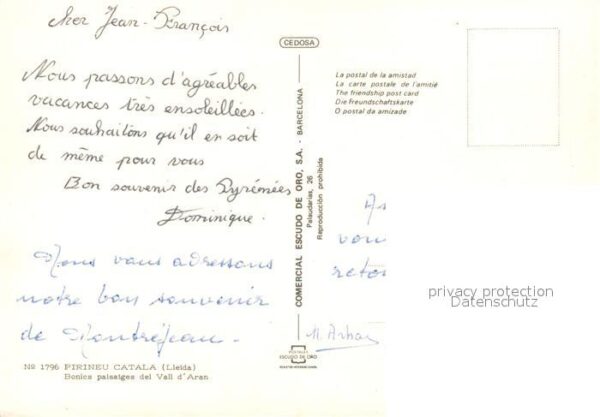 Cher Jean-François
Nous passons d'agréables
vacances très ensoleillées.
Nous souhaitons qu'il en soit
de même pour vous
Bon souvenir des Pyrénées
Dominique.
Nous vous adressons
notre bon souvenir
de Montréjeau.
Nº 1796 PIRINEU CATALA (Lleida)
Bonics paisatges del Vall d'Aran
CEDOSA
COMERCIAL ESCUDO DE ORO, S.A. - BARCELONA
Palaudarias, 26
Reproducción prohibida
POSTALES
ESCUDO DE ORO
La postal de la amistad
La carte postale de l'amitié
The friendship post card
Die Freundschaftskarte
O postal da amizade
vou
reto
M.
privacy protection
Datenschutz